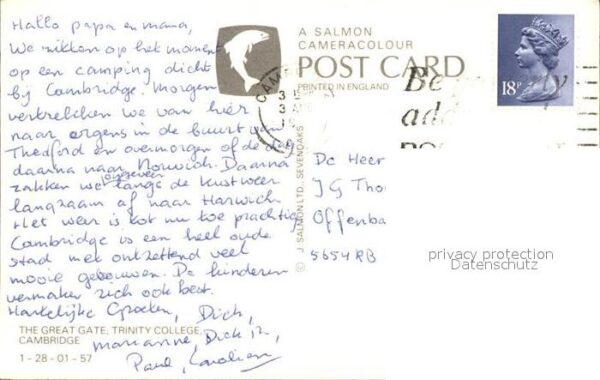 Hallo papa en mama,
We zitten op het moment
op een camping dicht
bij Cambridge. Morgen
vertrekken we van hier
naar ergens in de buurt van
Thedford en overmorgen of de dag
daarna naar Norwich. Daarna
zakken we ongeveer langs de kust weer
langzaam af naar Harwich
Het weer is tot nu toe prachtig
Cambridge is een heel oude
stad met ontzettend veel
mooie gebouwen. De kinderen
vermaken zich ook best.
Hartelijke Groeten, Dick,
Marianne, Dick jr,
Paul, Carolien
THE GREAT GATE, TRINITY COLLEGE,
CAMBRIDGE
1-28-01-57
A SALMON
CAMERACOLOUR
POST CARD
PRINTED IN ENGLAND
© J. SALMON LTD., SEVENOAKS
18P
De Heer
J G Tho
Offenba
5654 RB
privacy protection
Datenschutz